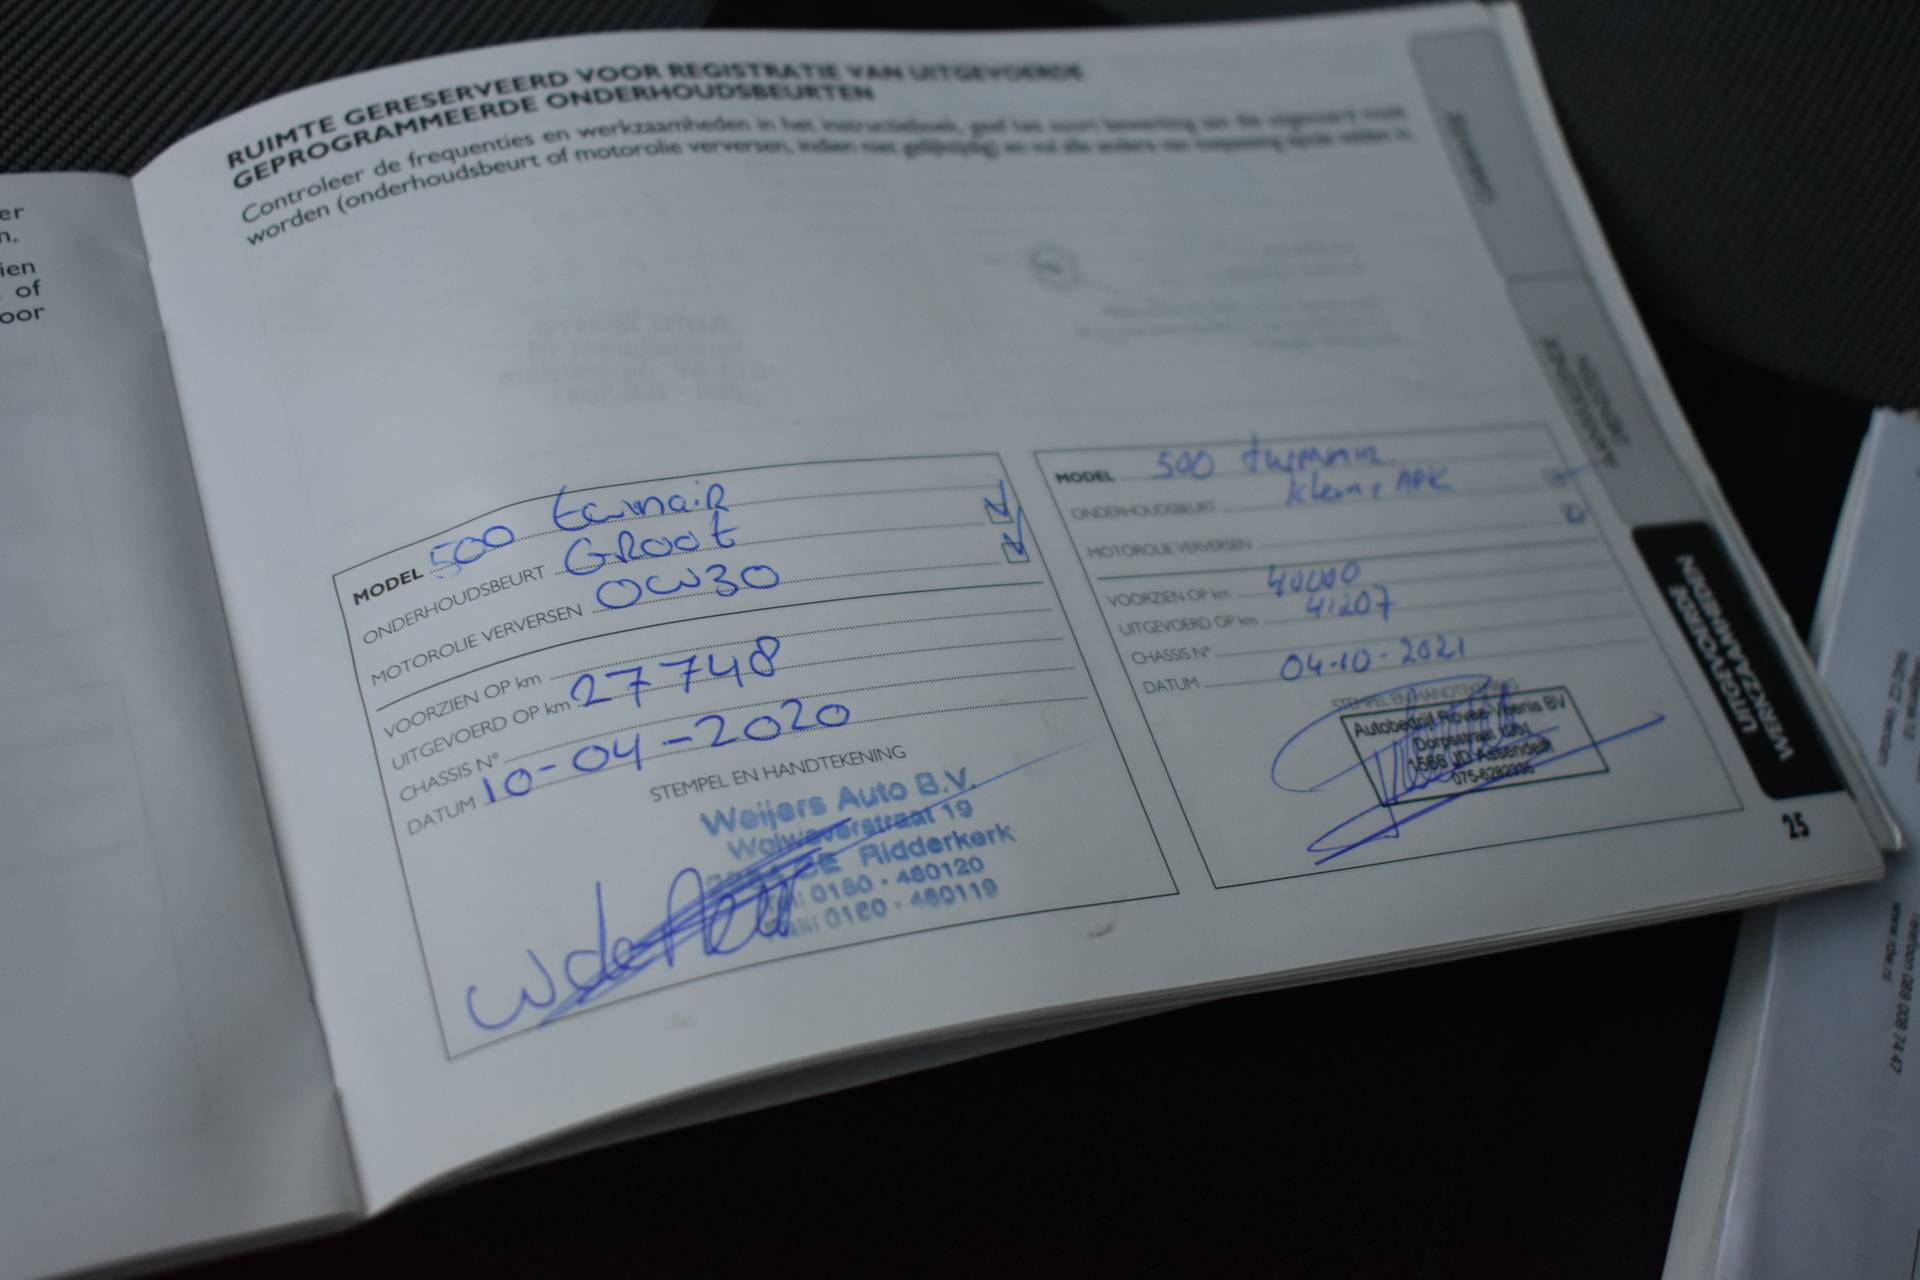 er
n.
ien
of
oor
RUIMTE GERESERVEERD VOOR REGISTRATIE VAN UITGEVOERDE
GEPROGRAMMEERDE ONDERHOUDSBEURTEN
Controleer de frequenties en werkzaamheden in het instructieboek, geef het soort bewerking aan die uitgevoerd moet
worden (onderhoudsbeurt of motorolie verversen, indien niet gelijktijdig) en vul alle andere van toepassing zijnde velden in
MODEL 500 twinair
ONDERHOUDSBEURT GROOT
MOTOROLIE VERVERSEN 0W30
VOORZIEN OP km
UITGEVOERD OP km 27748
CHASSIS N°
DATUM 10-04-2020
STEMPEL EN HANDTEKENING
Weijers Auto B.V.
Wolweverstraat 19
Ridderkerk
0180 - 480120
0180 - 480119
MODEL 500 twinair
ONDERHOUDSBEURT klein + APK
MOTOROLIE VERVERSEN
VOORZIEN OP km 40000
UITGEVOERD OP km 41207
CHASSIS N°
DATUM 04-10-2021
STEMPEL EN HANDTEKENING
Autobedrijf Rovée-Veenis BV
Dorpsstraat
1566 JD Assendelft
075-6282935
GARANTIE
AANVULLENDE
DIENSTEN
UITGEVOERDE
WERKZAAMHEDEN
25
Telefoon 088 008 74 47
www.rdw.nl